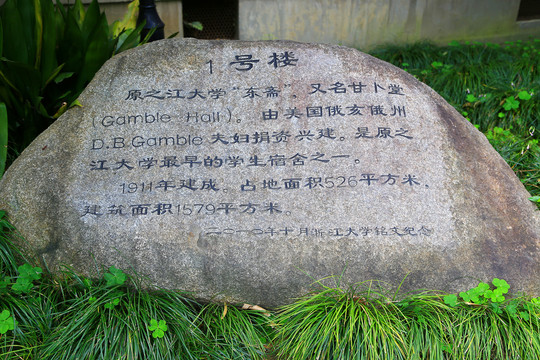 1 号楼
原之江大学“东斋”，又名甘卜堂
(Gamble Hall)。由美国俄亥俄州
D.B.Gamble 夫妇捐资兴建。是原之
江大学最早的学生宿舍之一。
1911年建成。占地面积526平方米，
建筑面积1579平方米。
二〇一〇年十月浙江大学铭文纪念